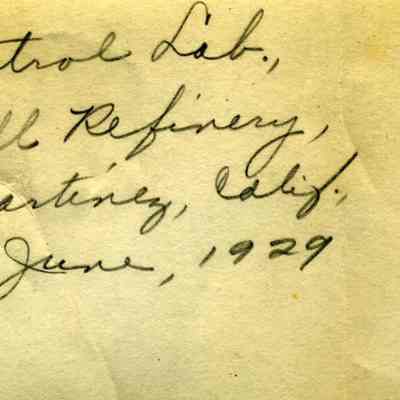 trol Lab.,
ll Refinery,
artinez, Calif.,
June, 1929